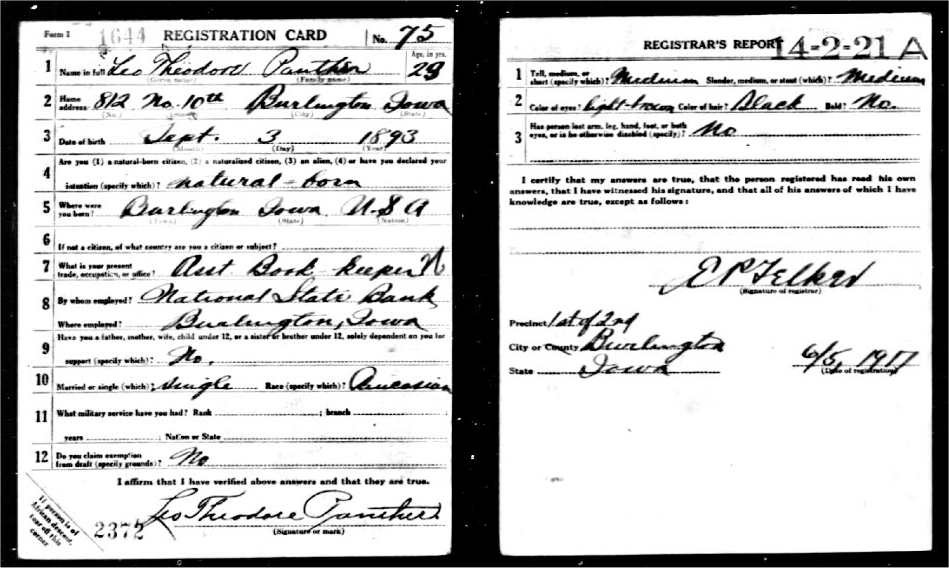 Form 1 1644 REGISTRATION CARD No. 75
1 Name in full Leo Theodore Panther Age, in yrs. 23
(Given name) (Family name)
2 Home address 812 No. 10th Burlington Iowa
(No.) (Street) (City) (State)
3 Date of birth Sept. 3 1893
(Month) (Day) (Year)
4 Are you (1) a natural-born citizen, (2) a naturalized citizen, (3) an alien, (4) or have you declared your
intention (specify which)? natural-born
5 Where were you born? Burlington Iowa U.S.A
(Town) (State) (Nation)
6 If not a citizen, of what country are you a citizen or subject?
7 What is your present trade, occupation, or office? Asst Book keeper
8 By whom employed? National State Bank
Where employed? Burlington, Iowa
9 Have you a father, mother, wife, child under 12, or a sister or brother under 12, solely dependent on you for
support (specify which)? No.
10 Married or single (which)? single Race (specify which)? Caucasian
11 What military service have you had? Rank ; branch
years ; Nation or State
12 Do you claim exemption from draft (specify grounds)? No
I affirm that I have verified above answers and that they are true.
Leo Theodore Panther
(Signature or mark)
If person is of African descent, tear off this corner
2372
REGISTRAR'S REPORT 14-2-21 A
1 Tall, medium, or short (specify which)? Medium Slender, medium, or stout (which)? Medium
2 Color of eyes? Light-brown Color of hair? Black Bald? No.
3 Has person lost arm, leg, hand, foot, or both eyes, or is he otherwise disabled (specify)? No
I certify that my answers are true, that the person registered has read his own
answers, that I have witnessed his signature, and that all of his answers of which I have
knowledge are true, except as follows:
E P Felker
(Signature of registrar)
Precinct 1st of 2nd
City or County Burlington
State Iowa
6/5, 1917
(Date of registration)